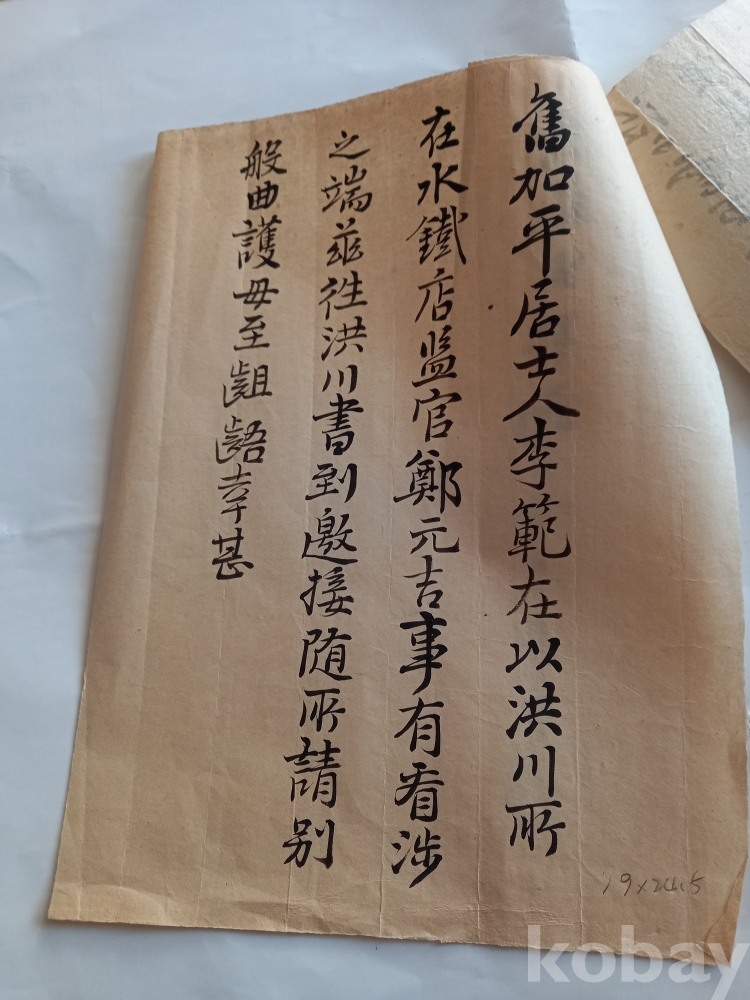 舊加平居士人李範在以洪川所
在水鐵店监官鄭元吉事有看涉
之端玆徃洪川書到邀接随所請别
般曲護毋至齟齬幸甚
19x24.5
kobay